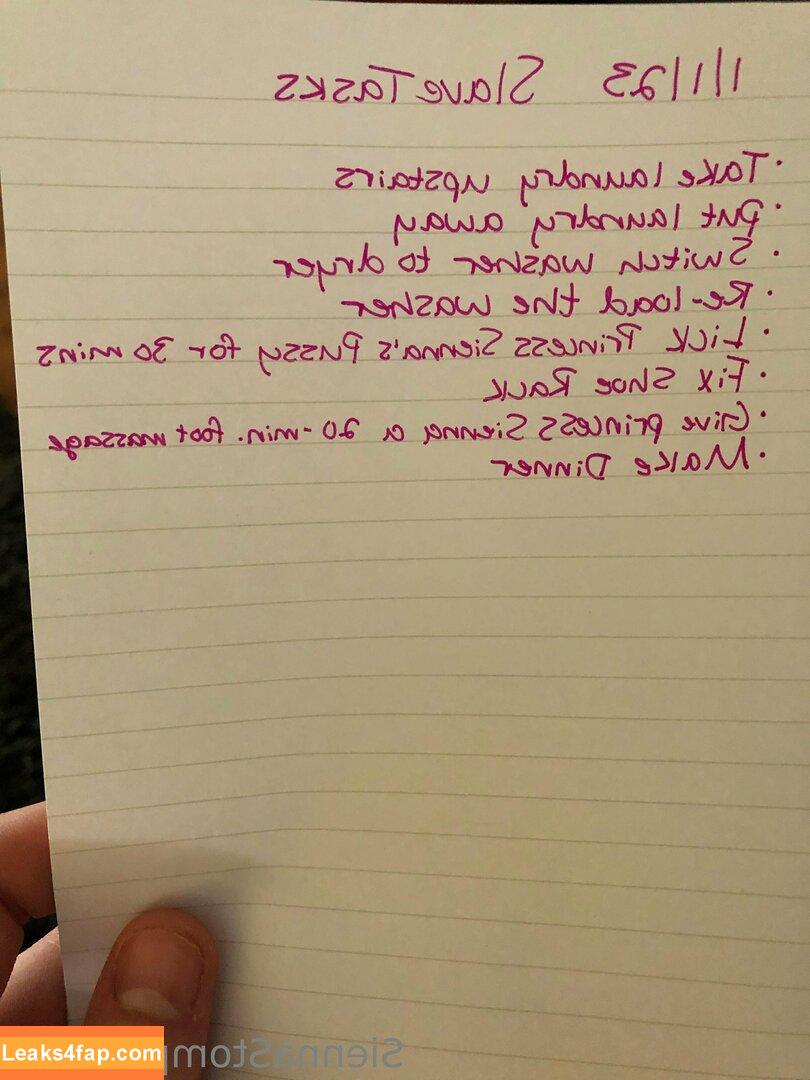 1/1/23 Slave Tasks
· Take laundry upstairs
· Put laundry away
· Switch washer to dryer
· Re-load the washer
· Lick Princess Sienna's Pussy for 30 mins
· Fix Shoe Rack
· Give princess Sienna a 20-min. foot massage
· Make Dinner
Leaks4fap.com